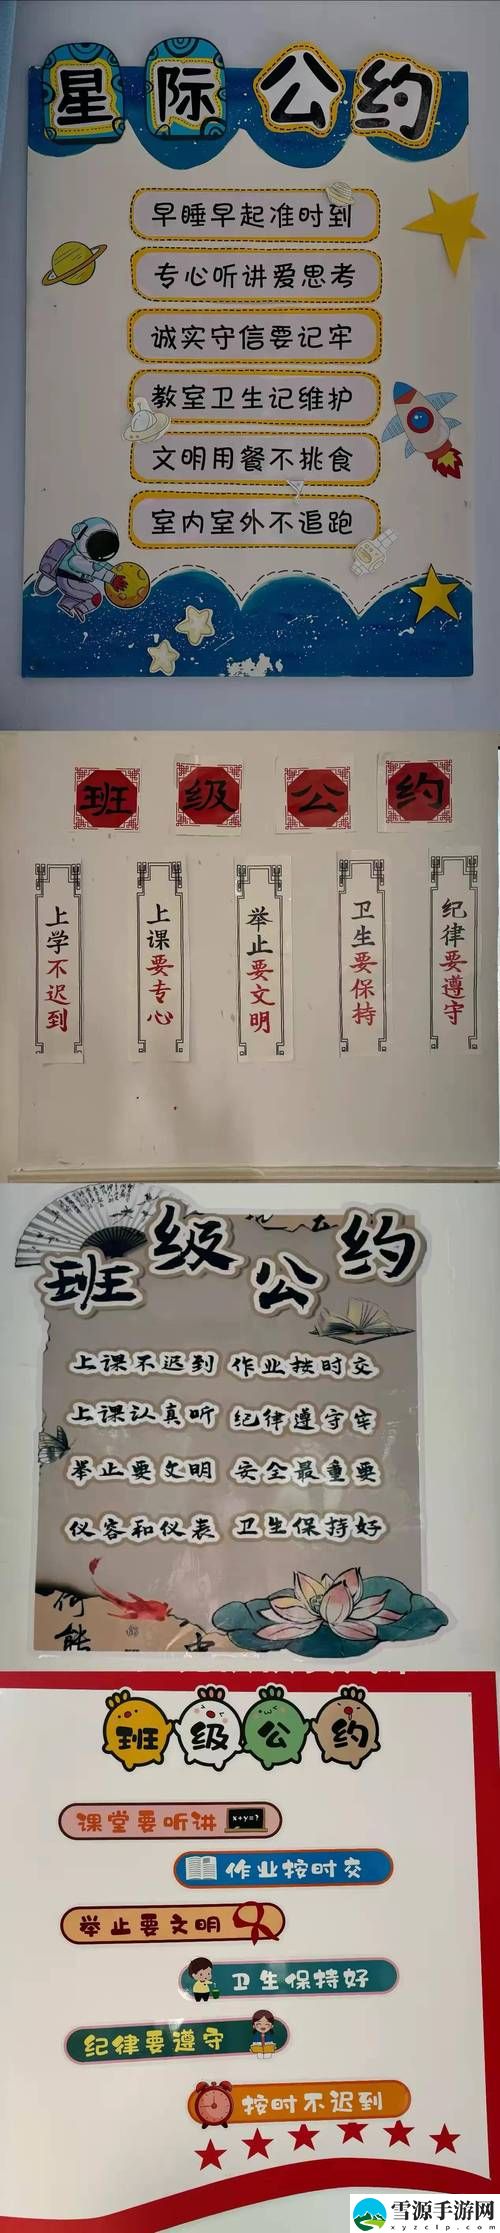 星际公约
早睡早起准时到
专心听讲爱思考
诚实守信要记牢
教室卫生记维护
文明用餐不挑食
室内室外不追跑
班级公约
上学不迟到
上课要专心
举止要文明
卫生要保持
纪律要遵守
班级公约
上课不迟到 作业按时交
上课认真听 纪律遵守牢
举止要文明 安全最重要
仪容和仪表 卫生保持好
何能
班级公约
课堂要听讲 x+y=?
作业按时交
举止要文明
卫生保持好
纪律要遵守
按时不迟到
雪源手游网
xyzclp.com